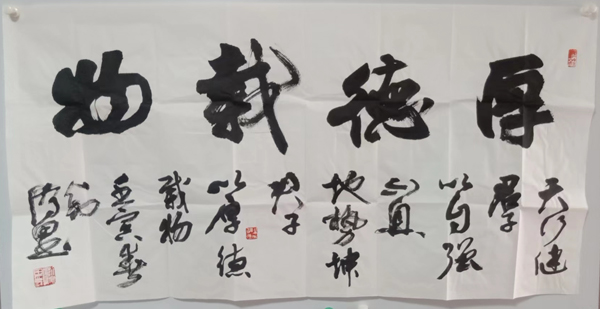 厚德載物
天行健
君子
以自强
不息
地勢坤
君子
以厚德
載物
壬寅春